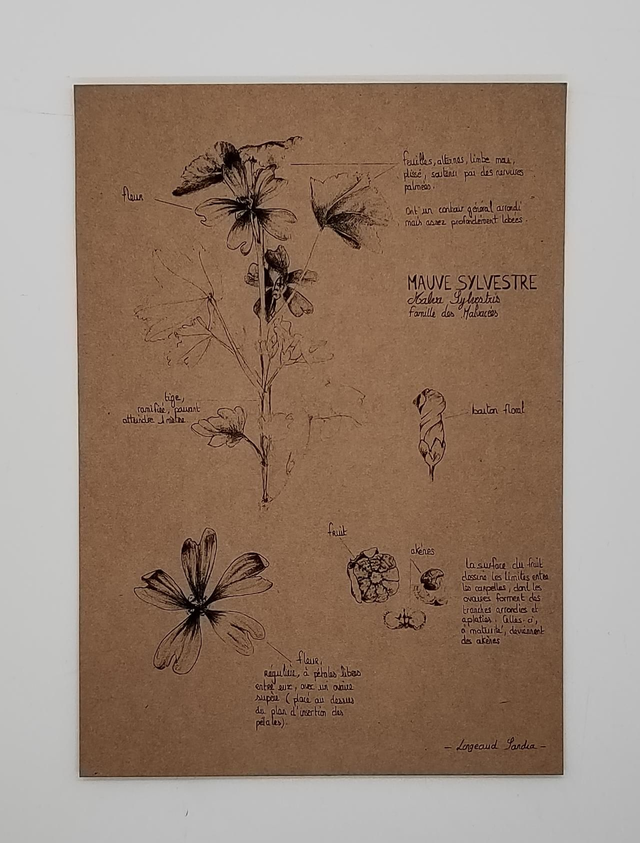 feuilles, alternes, limbe mou,
plissé, soutenu par des nervures
palmées.
Ont un contour général arrondi
mais assez profondément lobées.
fleur
MAUVE SYLVESTRE
Malva Sylvestris
Famille des Malvacées
tige,
ramifiée, pouvant
atteindre 1 mètre
bouton floral
fruit
akènes
la surface du fruit
dessine les limites entre
les carpelles, dont les
ovaires forment des
tranches arrondies et
aplaties. Celles-ci,
à maturité, deviennent
des akènes
fleur,
régulière, à pétales libres
entre eux, avec un ovaire
supère (placé au dessus
du plan d'insertion des
pétales).
- Longeaud Sandra -